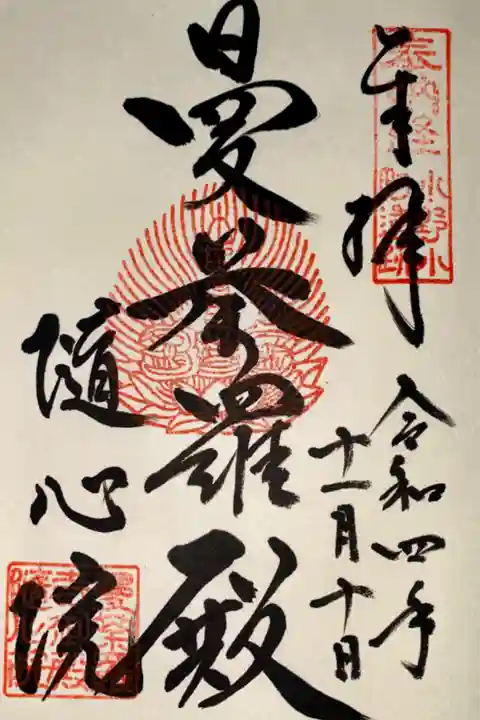 奉拝
令和四年
十一月十日
曼荼羅殿
隨心院